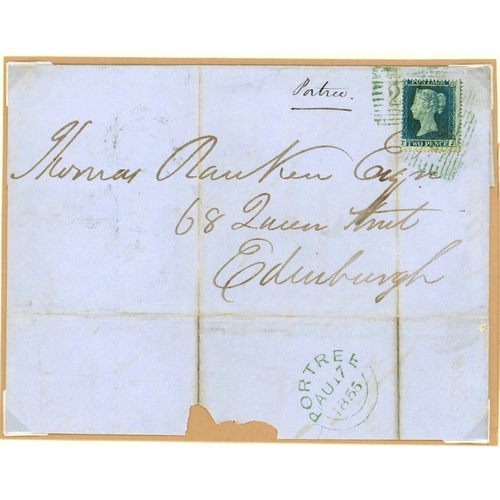 Portree.
2
POSTAGE
TWO PENCE
Thomas Ranken Esqr
68 Queen Street
Edinburgh
PORTREE
AU 17
1855